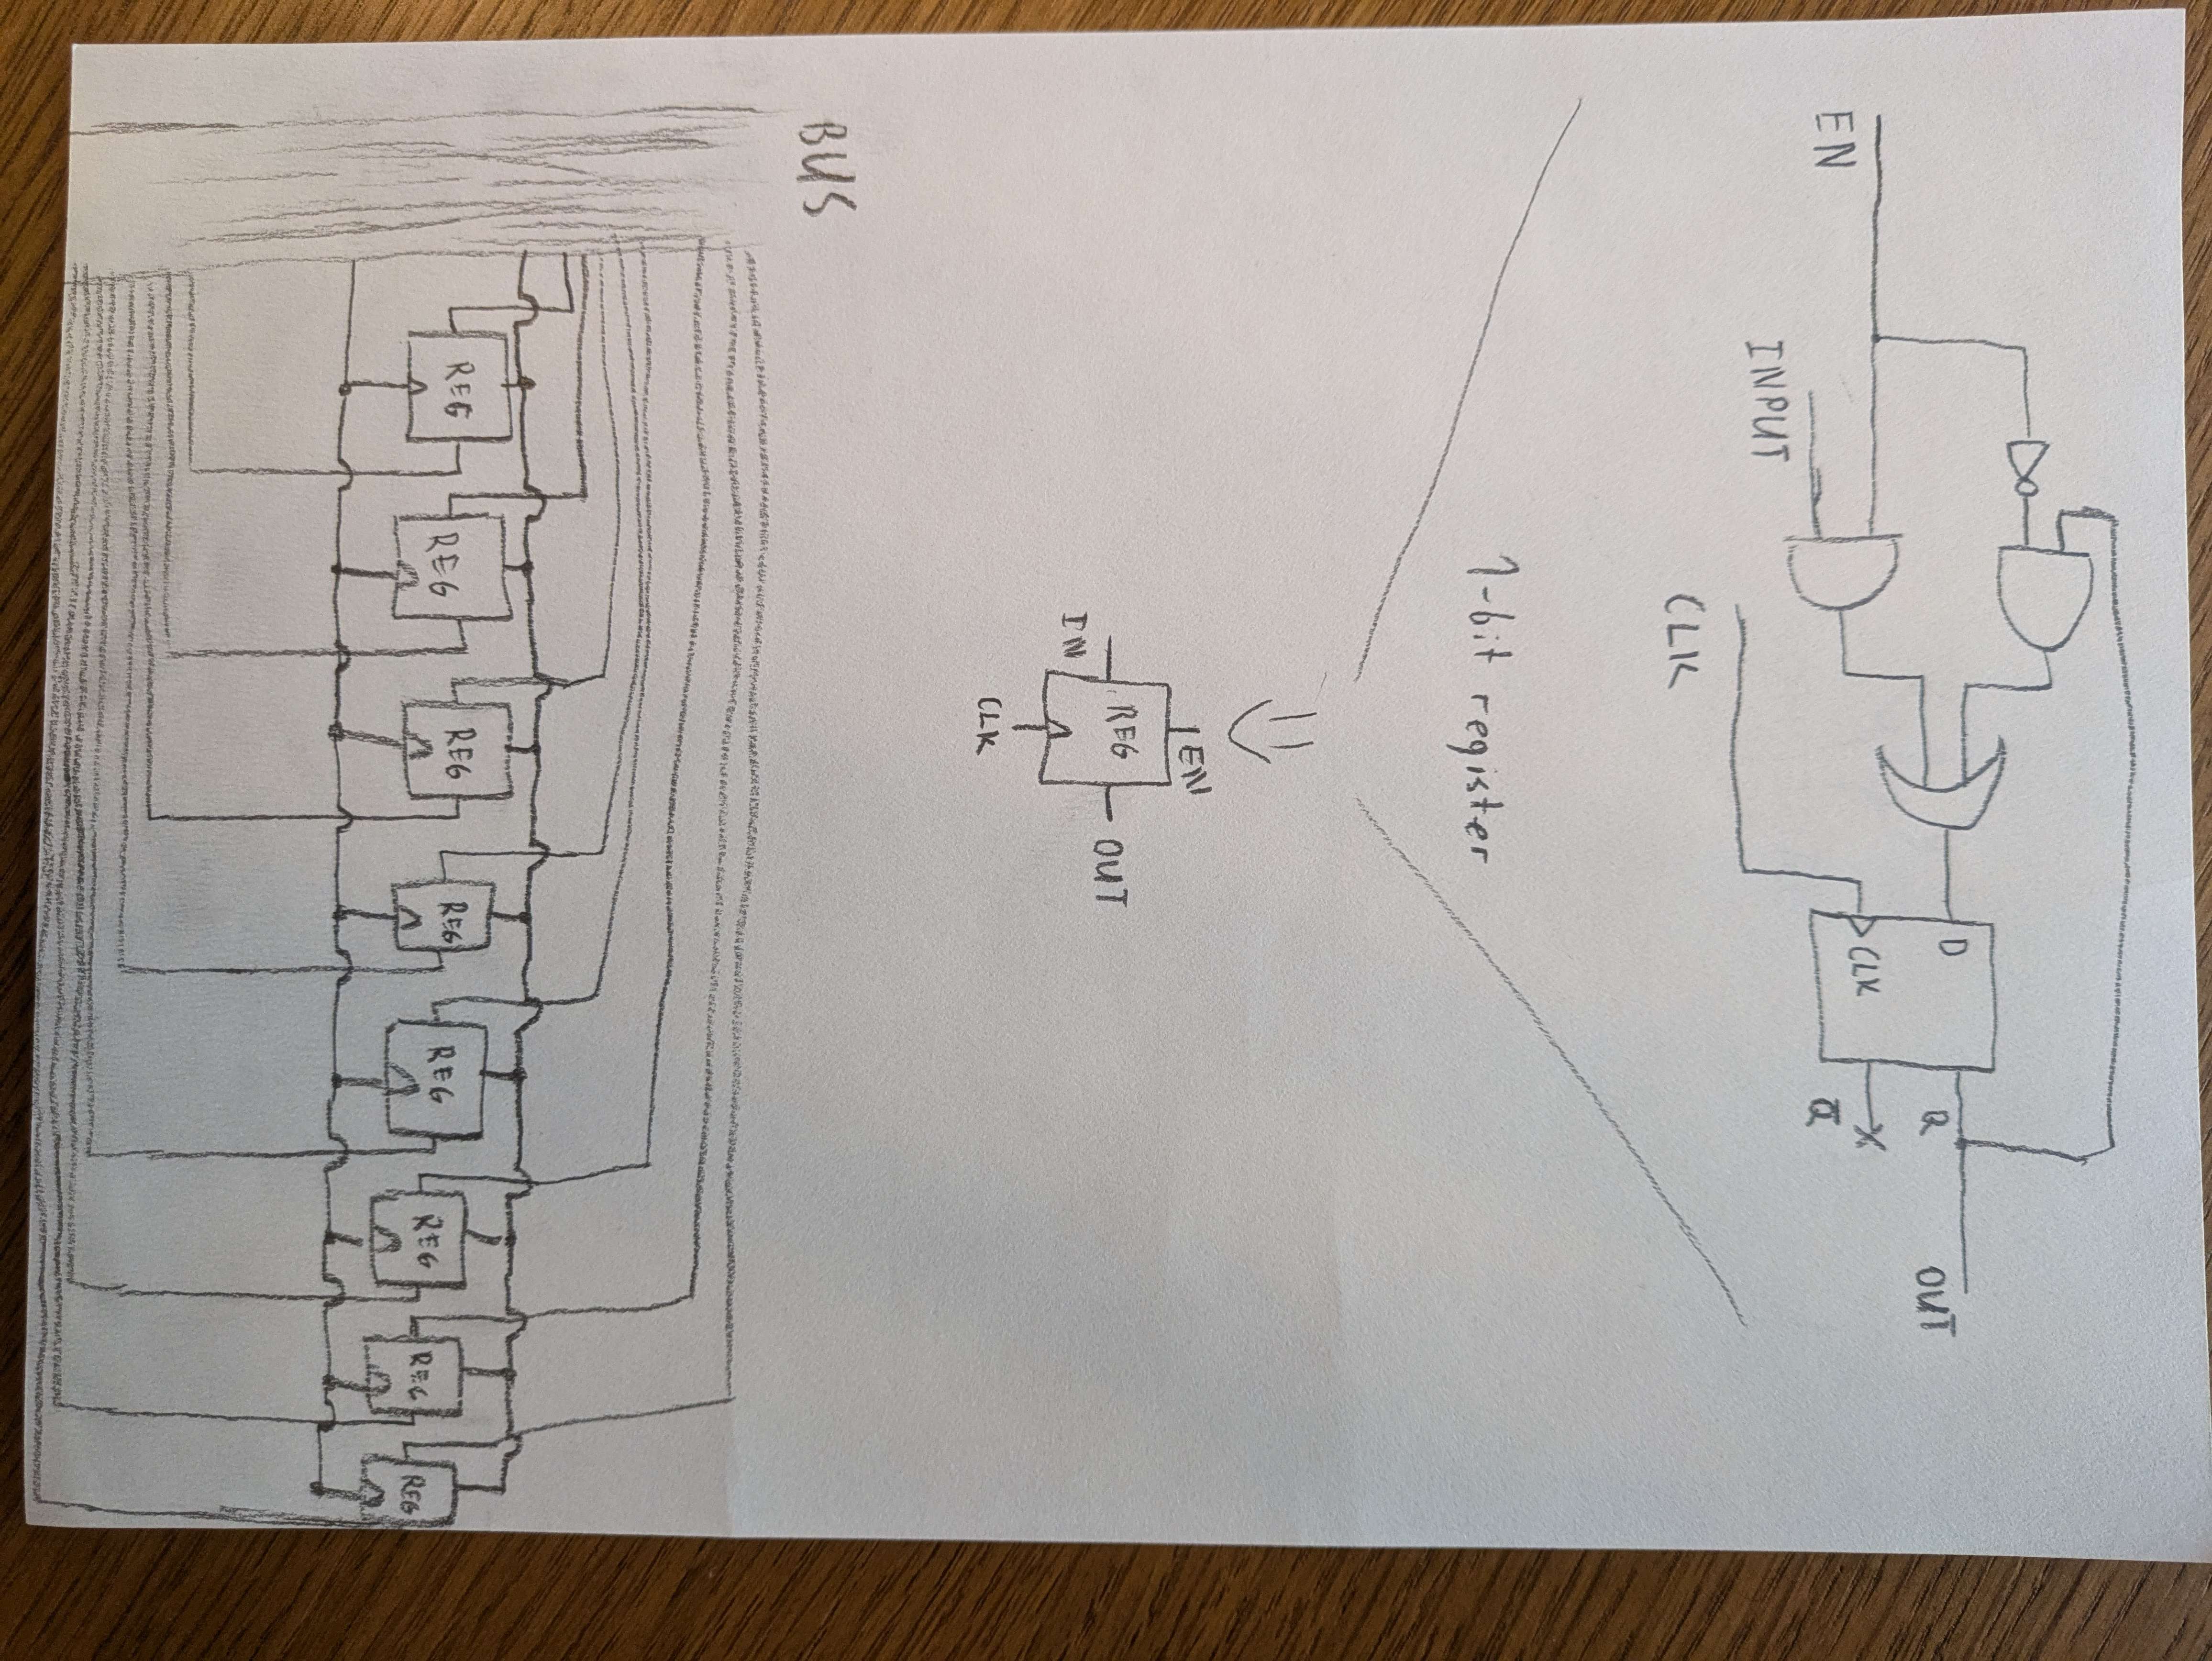 EN
INPUT
CLK
D
CLK
Q
Q̅
OUT
1-bit register
IN
REG
EN
CLK
OUT
BUS
REG
REG
REG
REG
REG
REG
REG
REG